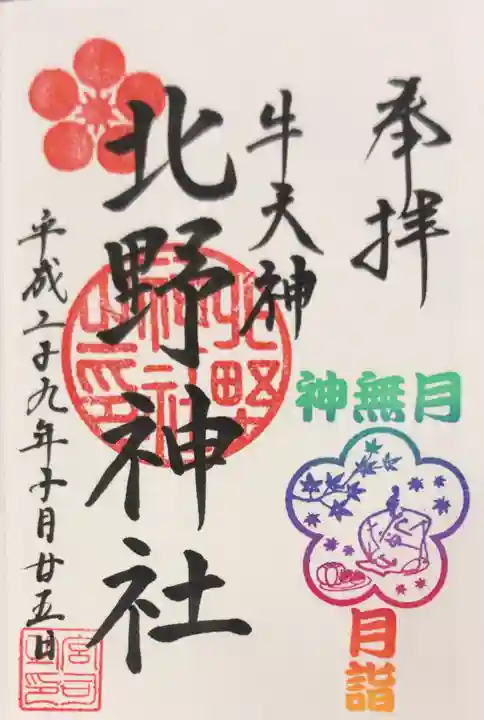 奉拝
牛天神
北野神社
平成二十九年十月廿五日
神無月
月詣
北野神社之印
宮司之印